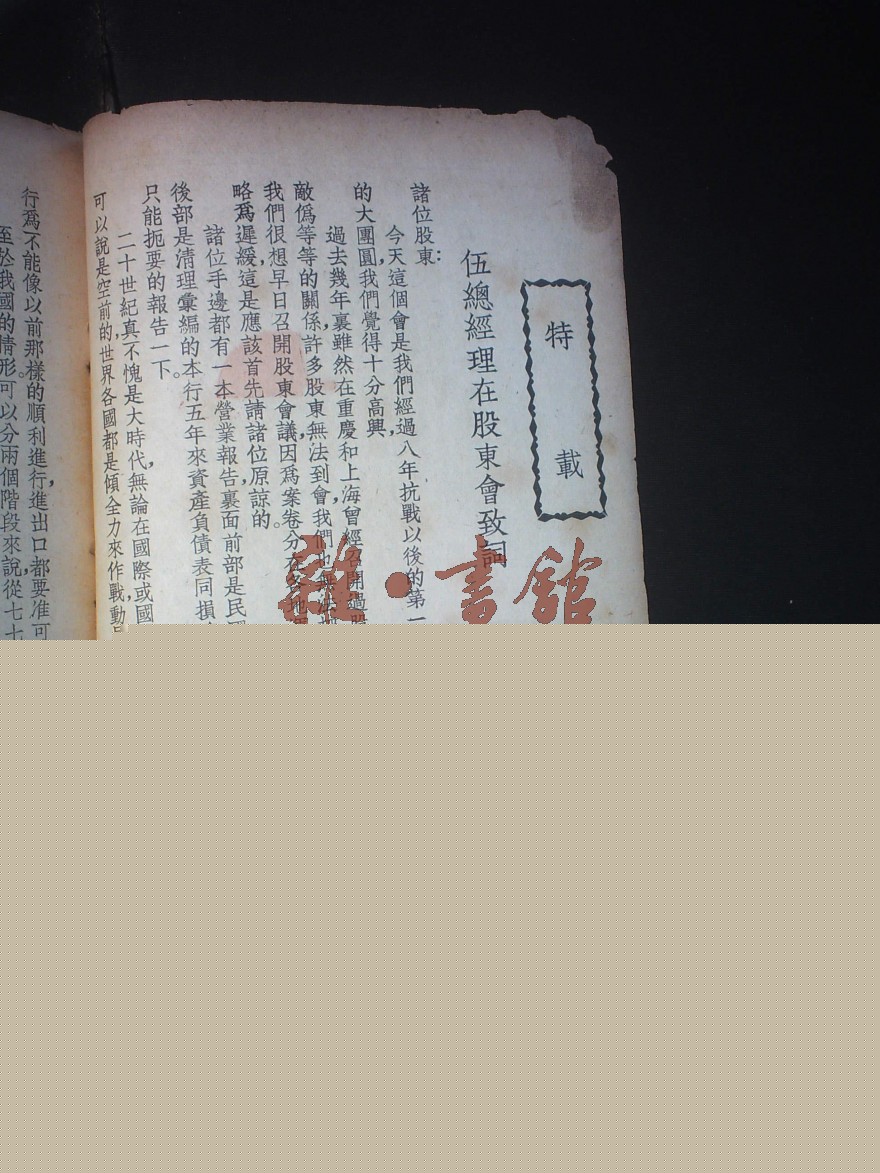 特載
伍總經理在股東會致詞
諸位股東：
今天這個會是我們經過八年抗戰以後的第一
的大團圓，我們覺得十分高興，
過去幾年裏雖然在重慶和上海曾經召開過股
敵僞等等的關係，許多股東無法到會，我們也
我們很想早日召開股東會議，因爲案卷分在各地
略爲遲緩，這是應該首先請諸位原諒的。
諸位手邊都有一本營業報告，裏面前部是民
後部是清理彙編的本行五年來資產負債表同損
只能扼要的報告一下。
二十世紀真不愧是大時代，無論在國際或國
可以說是空前的，世界各國都是傾全力來作戰，動
行爲，不能像以前那樣的順利進行，進出口都要准可
至於我國的情形，可以分兩個階段來說，從七七
雜·書館